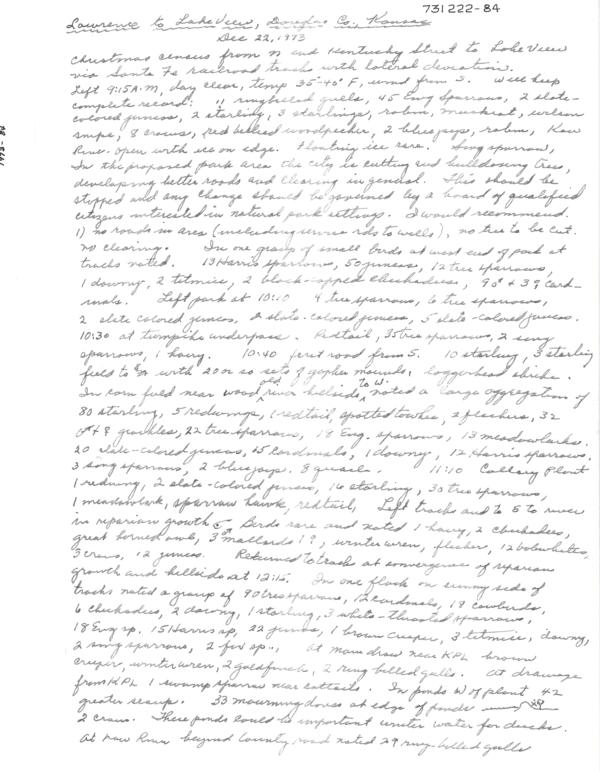 731222-84
Lawrence to Lake View, Douglas Co., Kansas
Dec 22, 1973
Christmas census from N end Kentucky Street to Lake View
via Santa Fe railroad tracks with lateral deviation.
Left 9:15 A.M, day clear, temp 35°-40° F, wind from S. Will keep
complete record: 11 ringbilled gulls, 45 Eng sparrows, 2 slate-
colored juncos, 2 starling, 3 starlings, robin, muskrat, wilson
snipe, 8 crows, red bellied woodpecker, 2 bluejays, robin, Kaw
River open with ice on edge. Floating ice rare. Song sparrow,
In the proposed park area the city is cutting and bulldozing trees,
developing better roads and clearing in general. This should be
stopped and any change should be governed by a board of qualified
citizens interested in natural park settings. I would recommend
1) no roads in area (including service rds to wells), no tree to be cut.
no clearing. In one group of small birds at west end of park at
tracks noted. 13 Harris sparrows, 50 juncos, 12 tree sparrows,
1 downy, 2 titmice, 2 black-capped chickadees, 9♂ & 3♀ card-
inals. Left park at 10:10 4 tree sparrows, 6 tree sparrows,
2 slate colored juncos. 2 slate-colored juncos, 5 slate-colored juncos.
10:30 at turnpike underpass. Redtail, 35 tree sparrows, 2 song
sparrows, 1 hairy. 10:40 first road from S. 10 starling, 3 starling
field to N with 20 or so sets of gopher mounds, loggerhead shrike.
In corn field near wood old river hillside, to W. noted a large aggregation of
80 starling, 5 redwings, 1 redtail, spotted towhee, 2 flickers, 32
♂ & ♀ grackles, 22 tree sparrows, 18 Eng. sparrows, 13 meadowlarks.
20 slate-colored juncos, 15 Cardinals, 1 downy, 12 Harris sparrows.
3 song sparrows, 2 bluejays. 8 quail. 11:10 Plant
1 redwing, 2 slate-colored juncos, 16 starling, 30 tree sparrows,
1 meadowlark, sparrow hawk, redtail, Left tracks and to S to river
in reparian growth. Birds rare and noted 1 hairy, 2 chickadees,
great horned owl, 3♂ mallards 1♀, winter wren, flicker, 12 bobwhites,
3 crows, 12 juncos. Returned to tracks at convergence of reparian
growth and hillside at 12:15. In one flock on sunny side of
tracks noted a group of 90 tree sparrows, 12 cardinals, 19 cowbirds,
6 chickadees, 2 downy, 1 starling, 3 white-throated sparrows,
18 Eng sp. 15 Harris sp, 22 juncos, 1 brown creeper, 3 titmice, downy,
2 song sparrows, 2 fox sp., At main draw near KPL brown
creeper, winter wren, 2 goldfinch, 2 ring billed gulls. At drainage
from KPL 1 swamp sparrow near cattails. In ponds W of plant 42
greater scaup. 33 mourning doves at edge of ponds
2 crows. These ponds could be important winter water for ducks.
At Kaw River beyond County road noted 29 ring-billed gulls